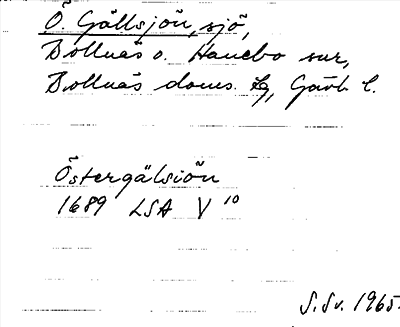 Ö. Gällsjön, sjö,
Bollnäs o. Hanebo snr,
Bollnäs doms. lg, Gävl. l.
Östergälsiön
1689 LSA V 10
S. Sv. 1965.